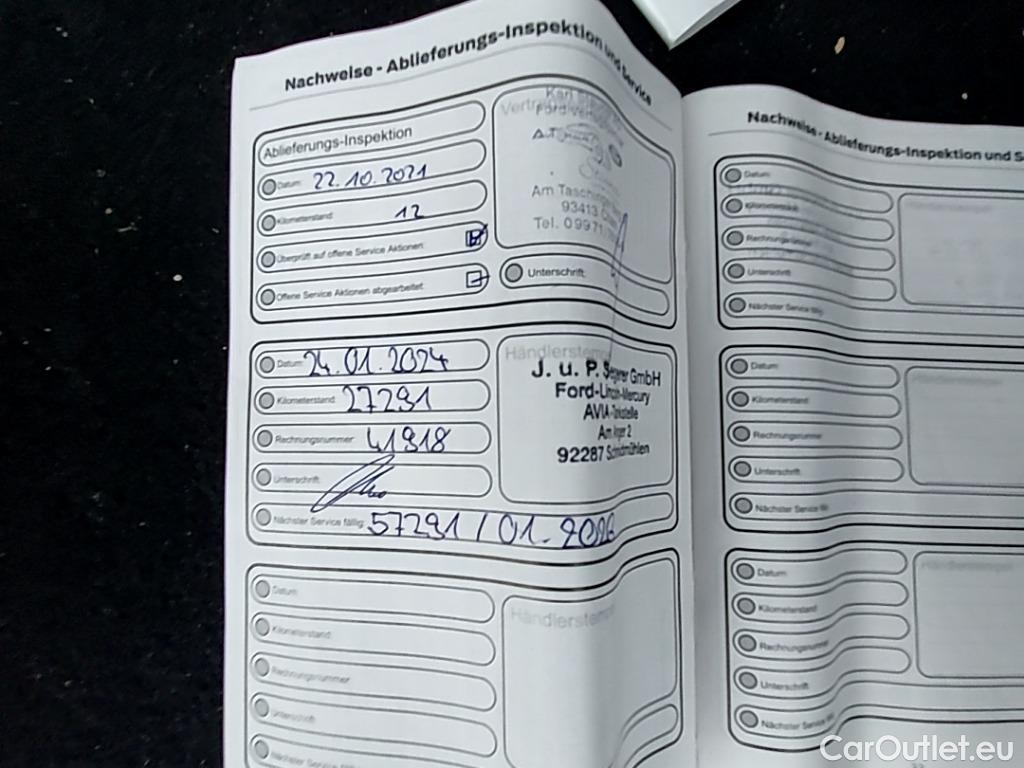 Nachweise - Ablieferungs-Inspektion und Service
Ablieferungs-Inspektion
Datum: 22.10.2021
Kilometerstand: 12
Überprüft auf offene Service Aktionen:
Offene Service Aktionen abgearbeitet:
Am
93413
Tel. 09971
Unterschrift:
Datum: 24.01.2024
Kilometerstand: 27291
Rechnungsnummer: 41918
Unterschrift:
Nächster Service fällig: 57291 / 01.2026
Händlerstempel
J. u. P. GmbH
Ford-Lincoln-Mercury
AVIA-Tankstelle
Am Anger 2
92287 Schmidmühlen
Datum:
Kilometerstand:
Rechnungsnummer:
Unterschrift:
Händlerstempel
Nachweise - Ablieferungs-Inspektion und S
Datum:
Kilometerstand:
Rechnungsnummer:
Unterschrift:
Nächster Service fällig:
Datum:
Kilometerstand:
Rechnungsnummer:
Unterschrift:
Nächster Service
Händlerstempel
Datum:
Kilometerstand:
Rechnungsnummer:
Unterschrift:
Nächster Service
Händlerstempel
CarOutlet.eu